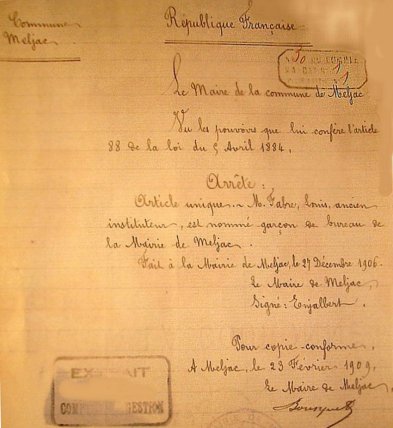 Commune
Meljac
République Française
Le Maire de la commune de Meljac
Vu les pouvoirs que lui confère l'article
88 de la loi du 5 Avril 1884,
Arrête :
Article unique. M. Fabre, Louis, ancien
instituteur, est nommé garçon de bureau de
la Mairie de Meljac.
Fait à la Mairie de Meljac, le 27 Décembre 1906.
Le Maire de Meljac,
Signé : Enjalbert.
Pour copie conforme,
A Meljac, le 23 Février 1909.
Le Maire de Meljac,
Bousquet
EXTRAIT
GESTION